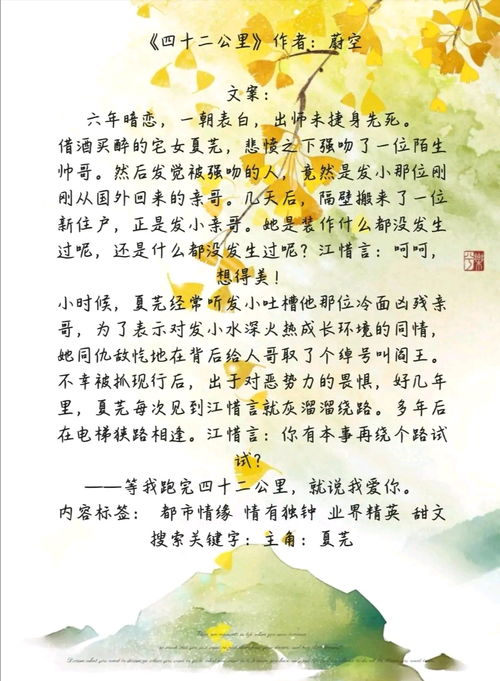 《四十二公里》作者：蔚空
文案：
六年暗恋，一朝表白，出师未捷身先死。
借酒买醉的宅女夏芜，悲愤之下强吻了一位陌生
帅哥。然后发觉被强吻的人，竟然是发小那位刚
刚从国外回来的亲哥。几天后，隔壁搬来了一位
新住户，正是发小亲哥。她是装作什么都没发生
过呢，还是什么都没发生过呢？江惜言：呵呵，
想得美！
小时候，夏芜经常听发小吐槽他那位冷面凶残亲
哥，为了表示对发小水深火热成长环境的同情，
她同仇敌忾地在背后给人哥取了个绰号叫阎王。
不幸被抓现行后，出于对恶势力的畏惧，好几年
里，夏芜每次见到江惜言就灰溜溜绕路。多年后
在电梯狭路相逢。江惜言：你有本事再绕个路试
试？
——等我跑完四十二公里，就说我爱你。
内容标签： 都市情缘 情有独钟 业界精英 甜文
搜索关键字：主角：夏芜